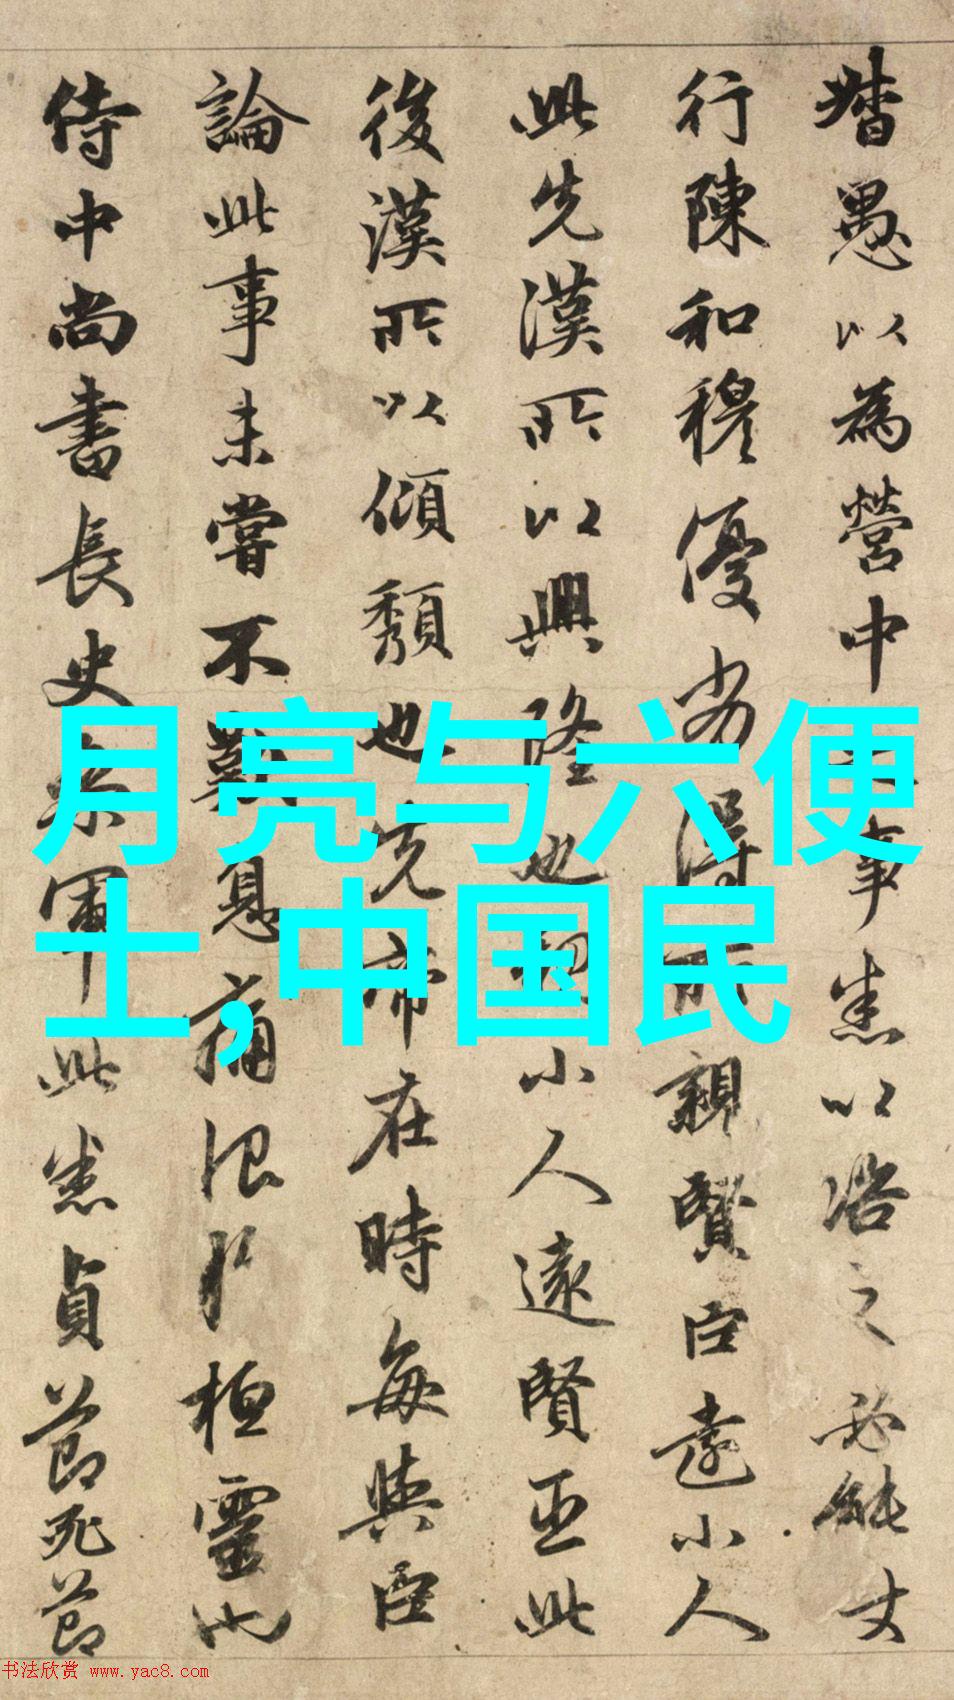 愚以為營中事悉以之必能
行陳和穆優劣得所親賢臣遠小人
此先漢所以興隆也親小人遠賢臣此
後漢所以傾頹也先帝在時每與臣
論此事未嘗不歎息痛恨於桓靈也
侍中尚書長史參軍此悉貞節死節
月亮与六便
士,中国民
书法欣赏 www.yac8.com